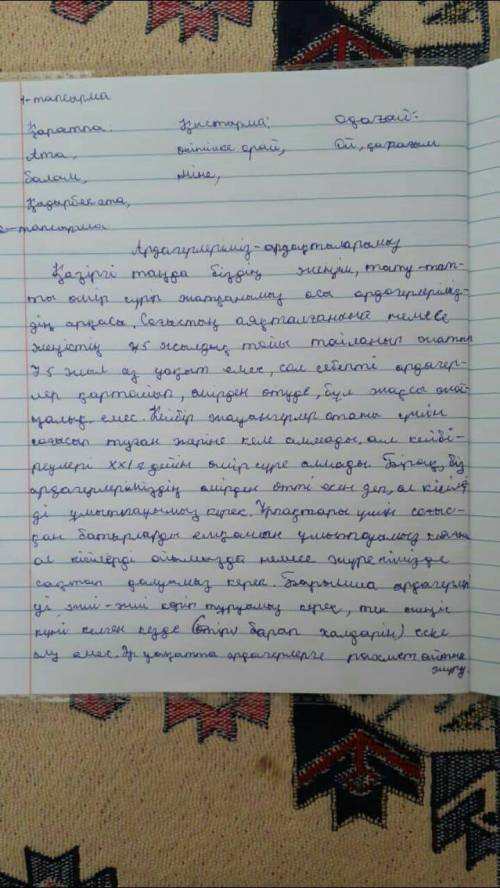 1-тапсырма
Қаратпа: Қыстырма: Одағай:
Ата, өкінішке орай, Ой, қарағым
балам, міне,
Қадырбек ата,
2-тапсырма
Ардагерлеріміз-ардақтыларымыз
Қазіргі таңда біздің жеңіл, тату-тәт-
ті өмір сүріп жатқанымыз осы ардагерлеріміз-
дің арқасы. Соғыстың аяқталғанына немесе
жеңістің 75 жылдық тойы тойланып жатыр
75 жыл аз уақыт емес, сол себепті ардагер-
лер қартайып, өмірден өтуде, бұл жақсы жа-
ңалық емес. Кейбір жауынгерлер отаны үшін
соғысып туған жеріне келе алмады, ал кейбі-
реулері XXI ғ дейін өмір сүре алмады. Бірақ, біз
ардагерлеріміздің өмірден өтті екен деп, ол кісілер-
ді ұмытпауымыз керек. Ұрпақтары үшін соғыс-
қан батырларды ешқашан ұмытпауымыз
ол кісілерді ойымызда немесе жүрегімізде
сақтап қалуымыз керек. Барынша ардагерлер-
ді жиі-жиі көріп тұруымыз керек, тек жеңіс
күні келген кезде (үйіне барып халдарін) еске
алу емес. Әр уақытта ардагерлерге рахмет айтып
жүру.